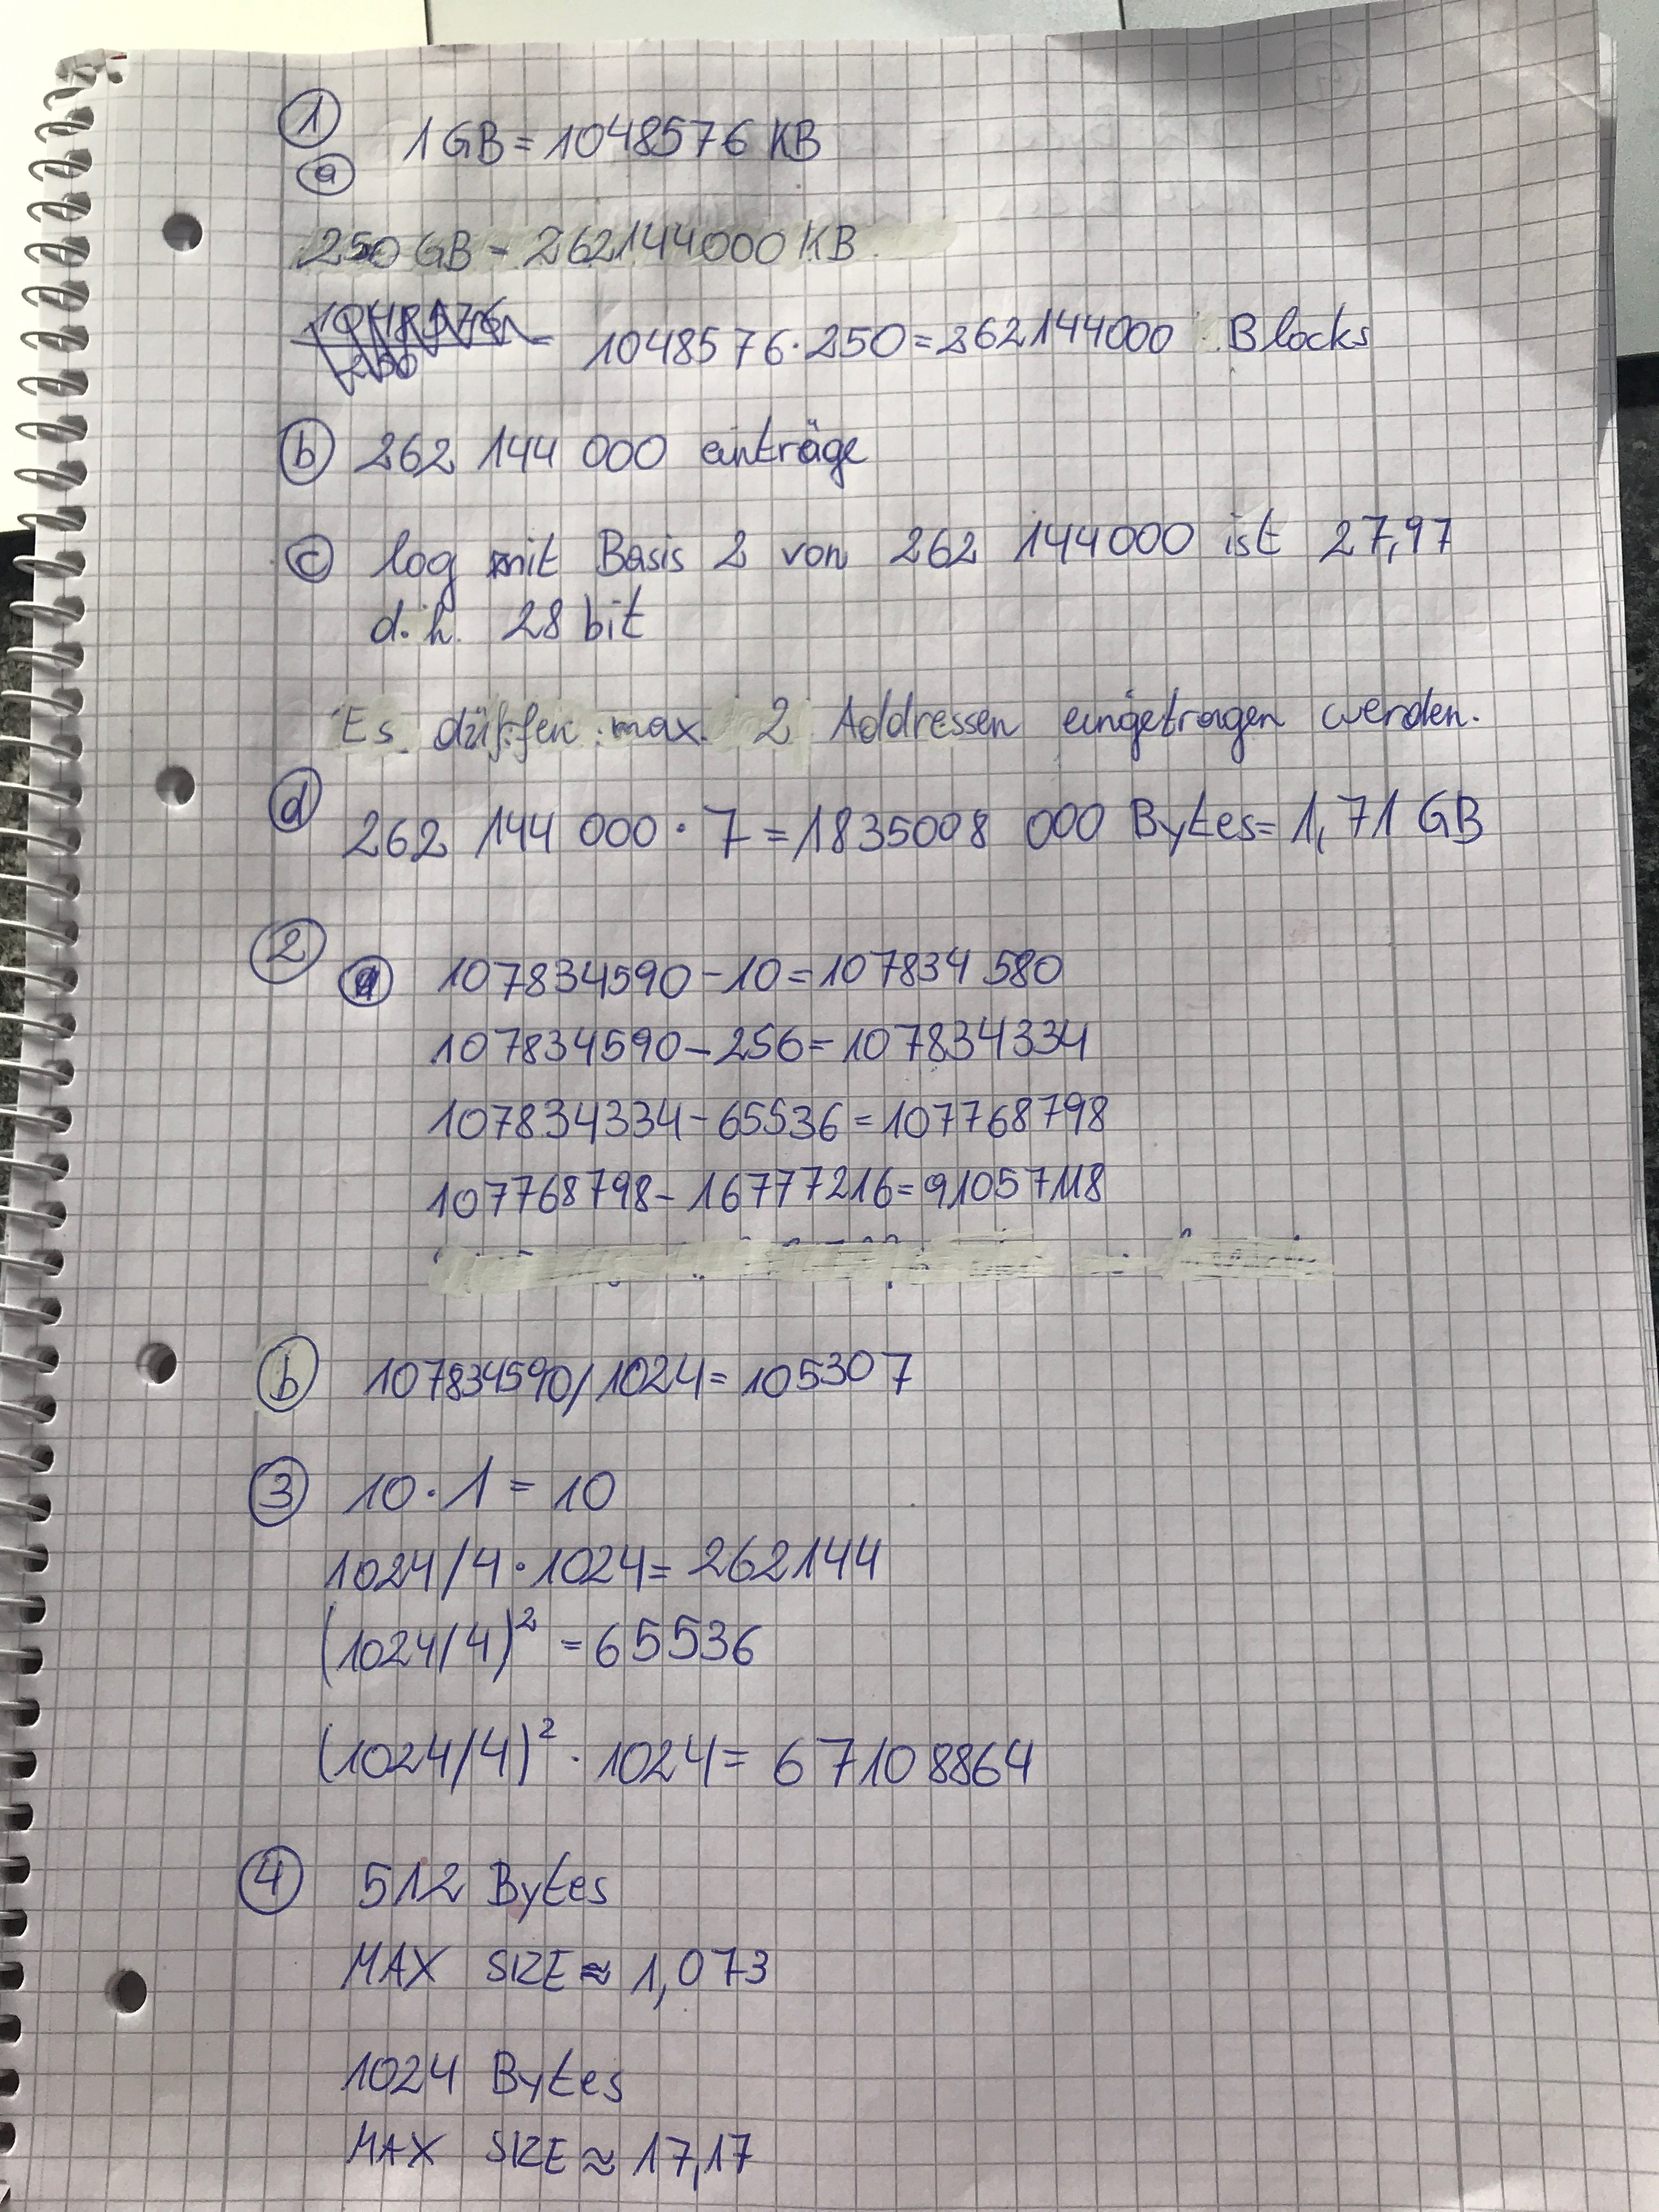 ① 1 GB = 1048576 KB
ⓐ
250 GB = 262144000 KB
1048576 · 250 = 262144000 Blocks
ⓑ 262 144 000 einträge
ⓒ log mit Basis 2 von 262 144000 ist 27,97
d.h. 28 bit
Es dürfen max. 2 Addressen eingetragen werden.
ⓓ 262 144 000 · 7 = 1835008 000 Bytes = 1,71 GB
② ⓐ 107834590 - 10 = 107834 580
107834590 - 256 = 107834334
107834334 - 65536 = 107768798
107768798 - 16777216 = 91057118
ⓑ 107834590/1024 = 105307
③ 10 · 1 = 10
1024/4 · 1024 = 262144
(1024/4)² = 65536
(1024/4)² · 1024 = 67108864
④ 512 Bytes
MAX SIZE ≈ 1,073
1024 Bytes
MAX SIZE ≈ 17,17